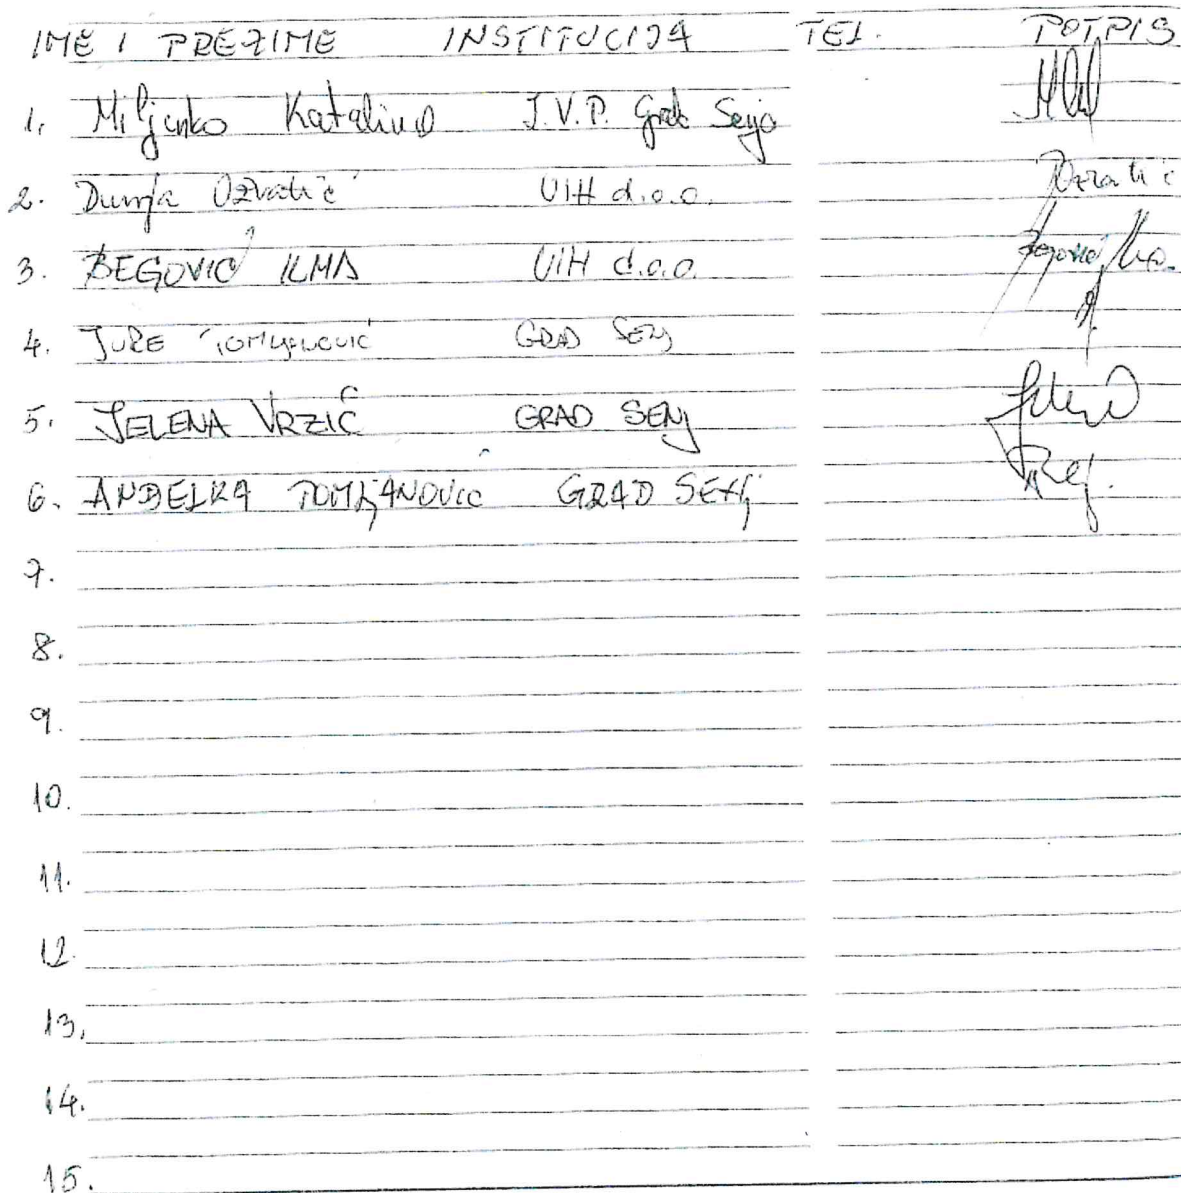 IME I PREZIME INSTITUCIJA TEL. POTPIS
1. Miljenko Katalinić J.V.P. Grada Senja
2. Dunja Ozvatić UIH d.o.o. Ozvatić
3. BEGOVIĆ ILMA UIH d.o.o. Begović Ilma
4. JURE TOMLJANOVIĆ GRAD SENJ
5. JELENA VRZIĆ GRAD SENJ
6. ANĐELKA TOMLJANOVIĆ GRAD SENJ
7.
8.
9.
10.
11.
12.
13.
14.
15.